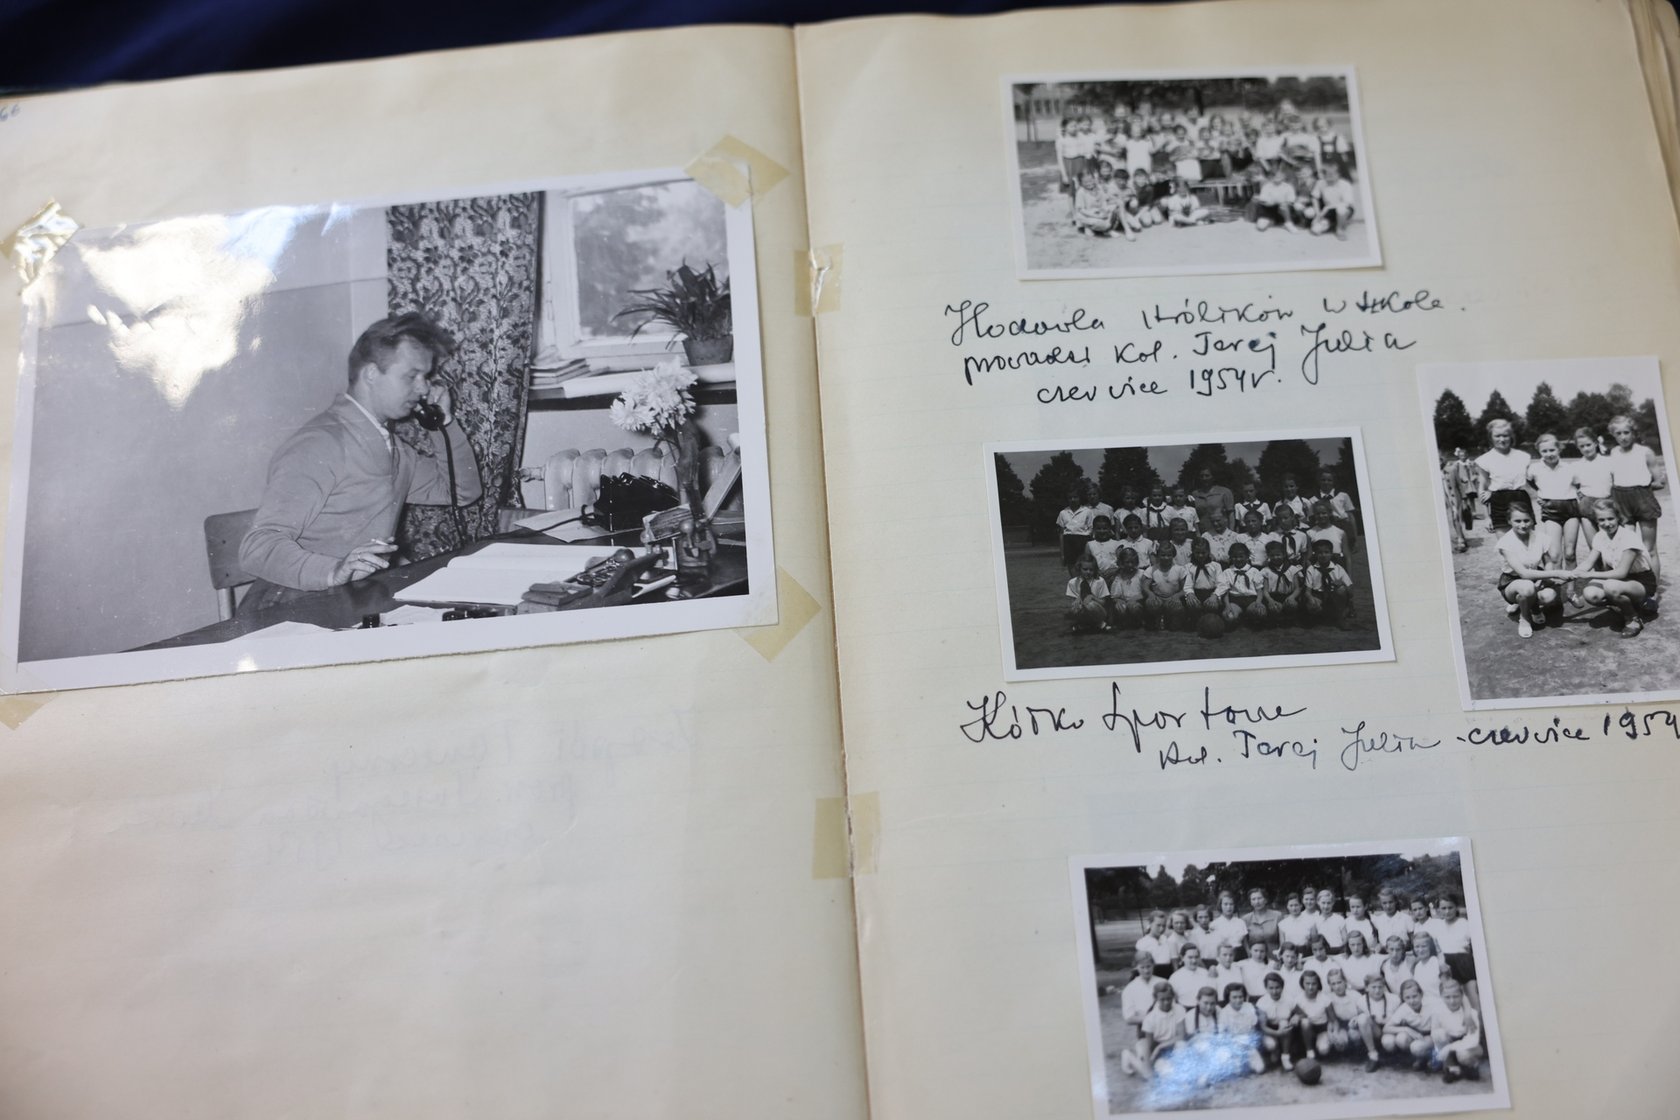 66
Hodowla królików w szkole.
prowadzi kol. Taraj Julia
czerwice 1954 r.
Kółko Sportowe
kol. Taraj Julia - czerwice 1954